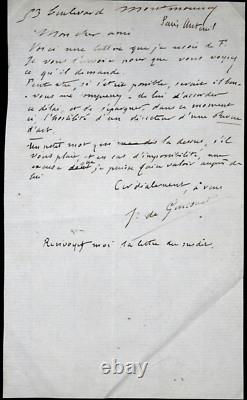 53 boulevard Montmorency
Paris Auteuil
Mon cher ami
Voici une lettre que je reçois de F.
Je vous l'envoie pour que vous voyez
ce qu'il demande.
Peut-être, si c'était possible, serait-il bon,
vous me comprenez, de lui d'accorder
ce délai, et de s'épargner, dans ce moment
ci l'hostilité d'un directeur d'une Revue
d'art.
Un petit mot là dessus, s'il
vous plaît, et en cas d'impossibilité, une
excuse que je puisse faire valoir auprès de
lui
Cordialement, à vous
J. de Goncourt
Renvoyez moi la lettre du